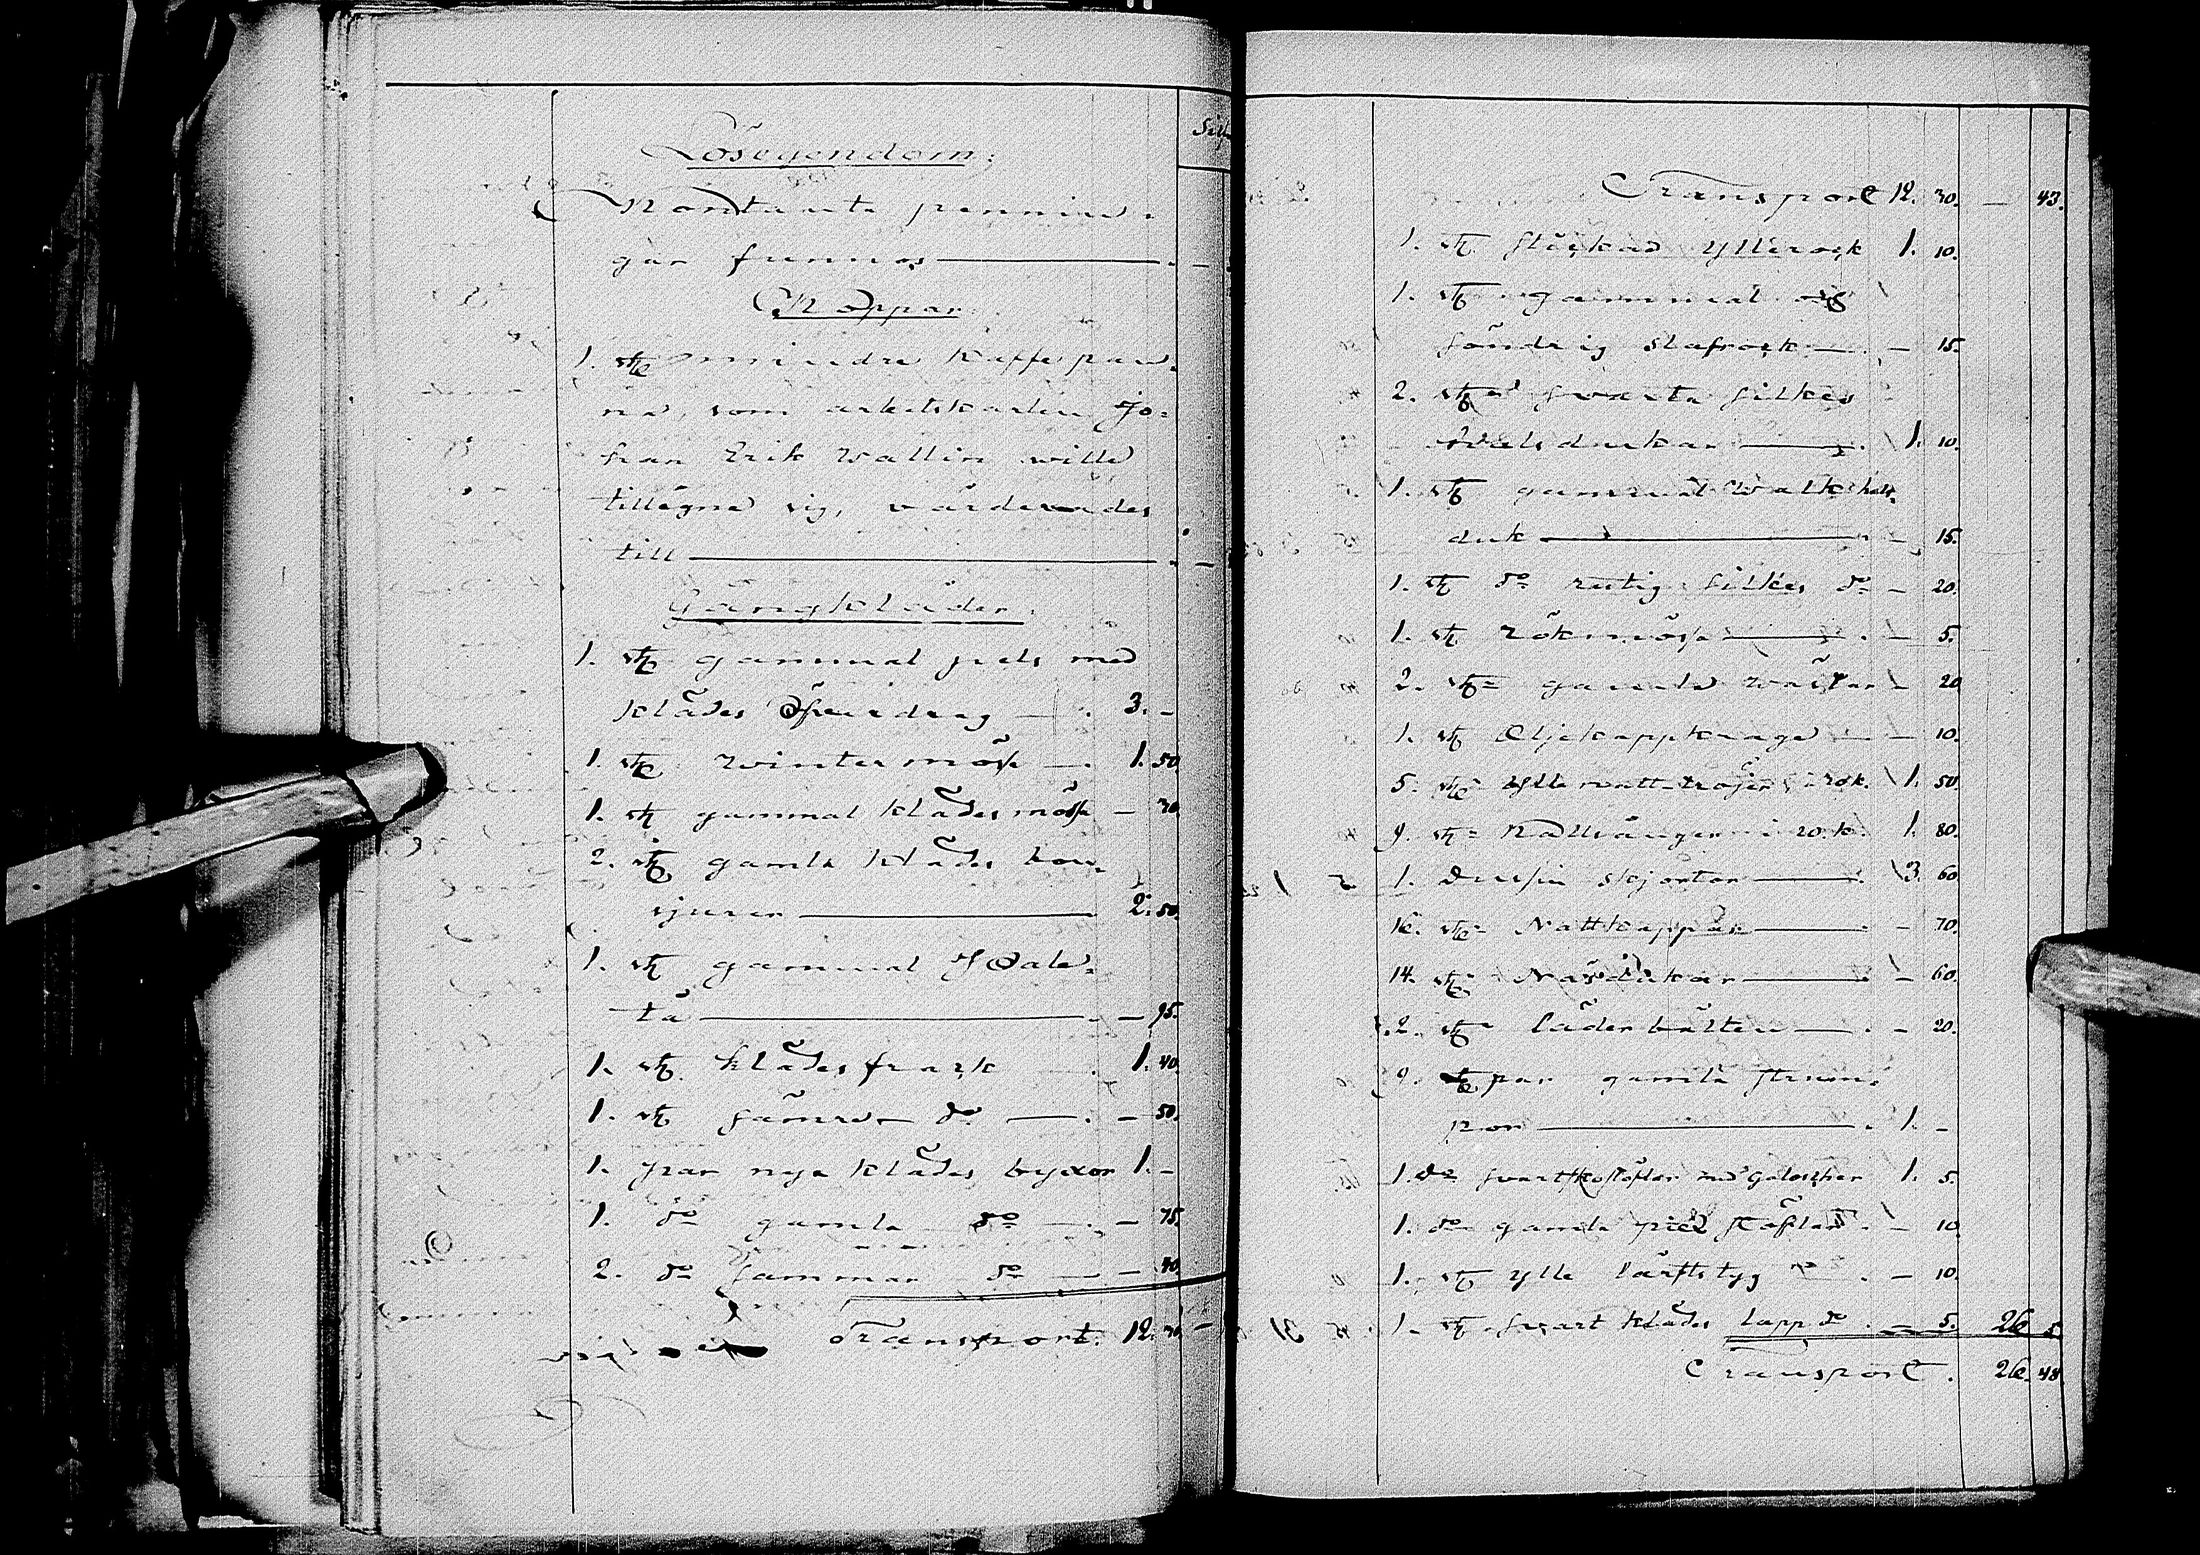 Silf
Lösegendom:
Kontanta pennin-
gar funnos — . —
Koppar
1. st. mindre kaffepan-
na, som arbetskarlen Jo-
han Erik Wallin wille
tillägna sig, värderades
till — . —
Gångkläder:
1. st. gammal pels med
klädes öfverdrag — . 3. —
1. st. wintermössa — . 1. 50.
1. st. gammal klädesmössa — 30.
2. st. gamla klädes bon-
sjurer — 2. 50.
1. st. gammal Pale-
tå — . — 95.
1. st. klädesfrack — . 1. 40.
1. st. sämre do — . — 50.
1. par nya klädes byxor 1. —
1. do gamla do — . — 75.
2. do sämmar do — — 40.
Transport. 12. 30. —
Transport 12. 30. — 43.
1. st. stickad yllerock 1. 10.
1. st. gammal og
söndrig slafrock — . — 15.
2. st. swarta silkes
halsdukar — . 1. 10.
1. st. gammal hals-
duk — . — 15.
1. st. do rutig silkes do — 20.
1. st. rökmössa — . — 5.
2. st. gamla wästar — 20
1. st. Oljekappkrage — — 10.
5. st. ylle natt-tröjor i rök. 1. 50.
9. st. Kallsånger i 20. k. 1. 80.
1. dussin skjortor — . 3. 60.
16. st. Nattkappor — . — 70.
14. st. Näsdukar — . — 60.
2. st. läderbälten — . — 20.
9. par gamla strum-
por — . 1. —
1. do swartsko stöflor med Galoscher 1. 5.
1. do gamla stöflar . — 10
1. st. ylle lärftstyg — . — 10.
1. st. swart klädes lapp do . — 5. 26 5
Transport. 26. 48